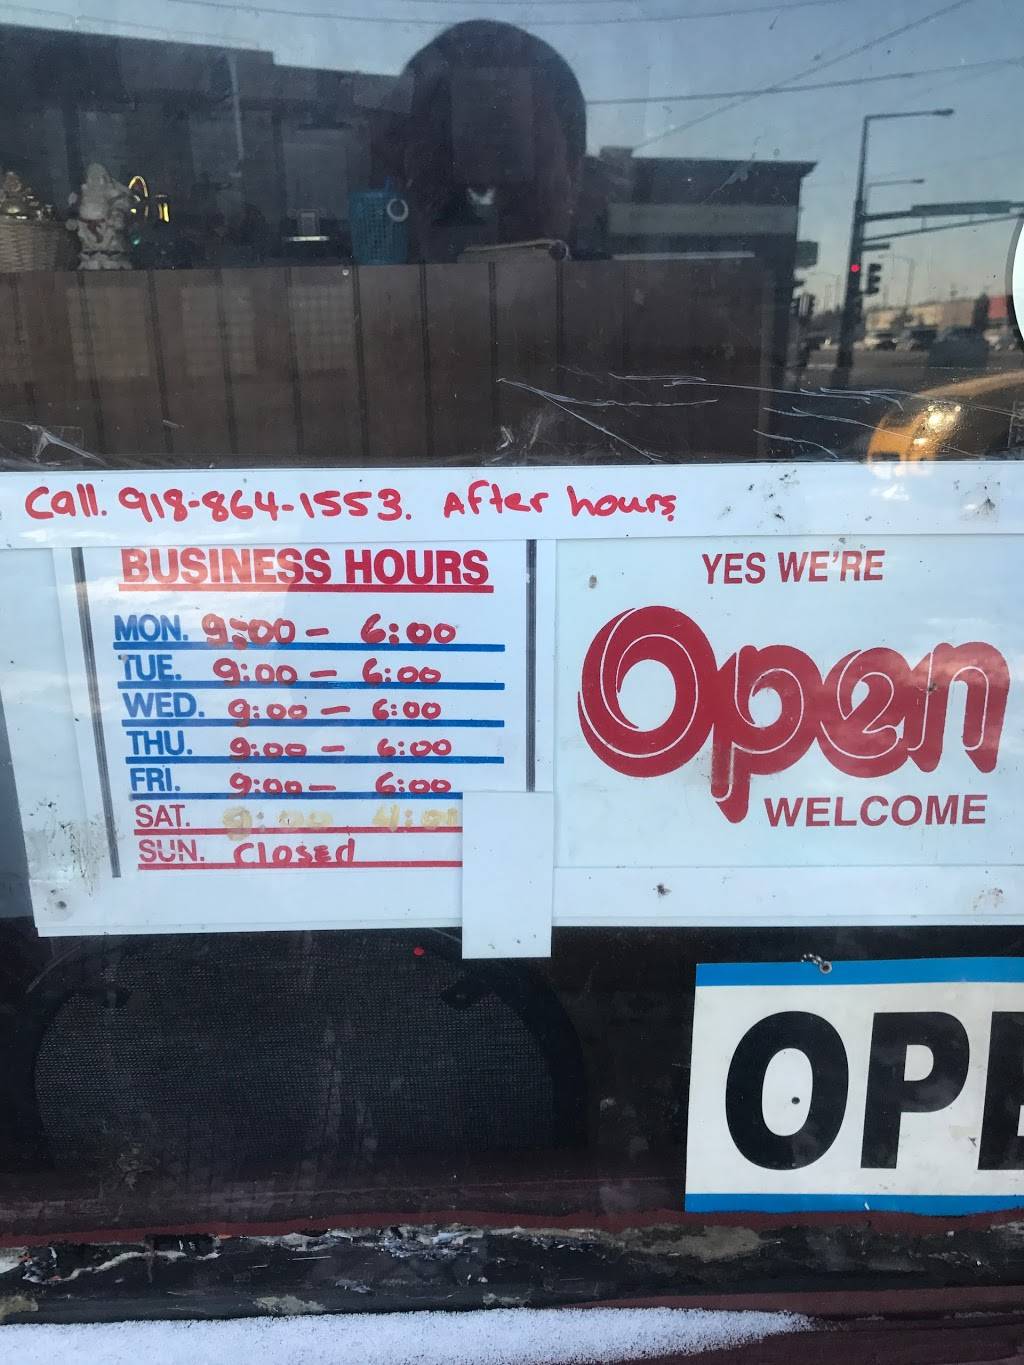 Call. 918-864-1553. After hours
BUSINESS HOURS
MON. 9:00 - 6:00
TUE. 9:00 - 6:00
WED. 9:00 - 6:00
THU. 9:00 - 6:00
FRI. 9:00 - 6:00
SAT. 9:00 4:00
SUN. Closed
YES WE'RE
Open
WELCOME
OPE